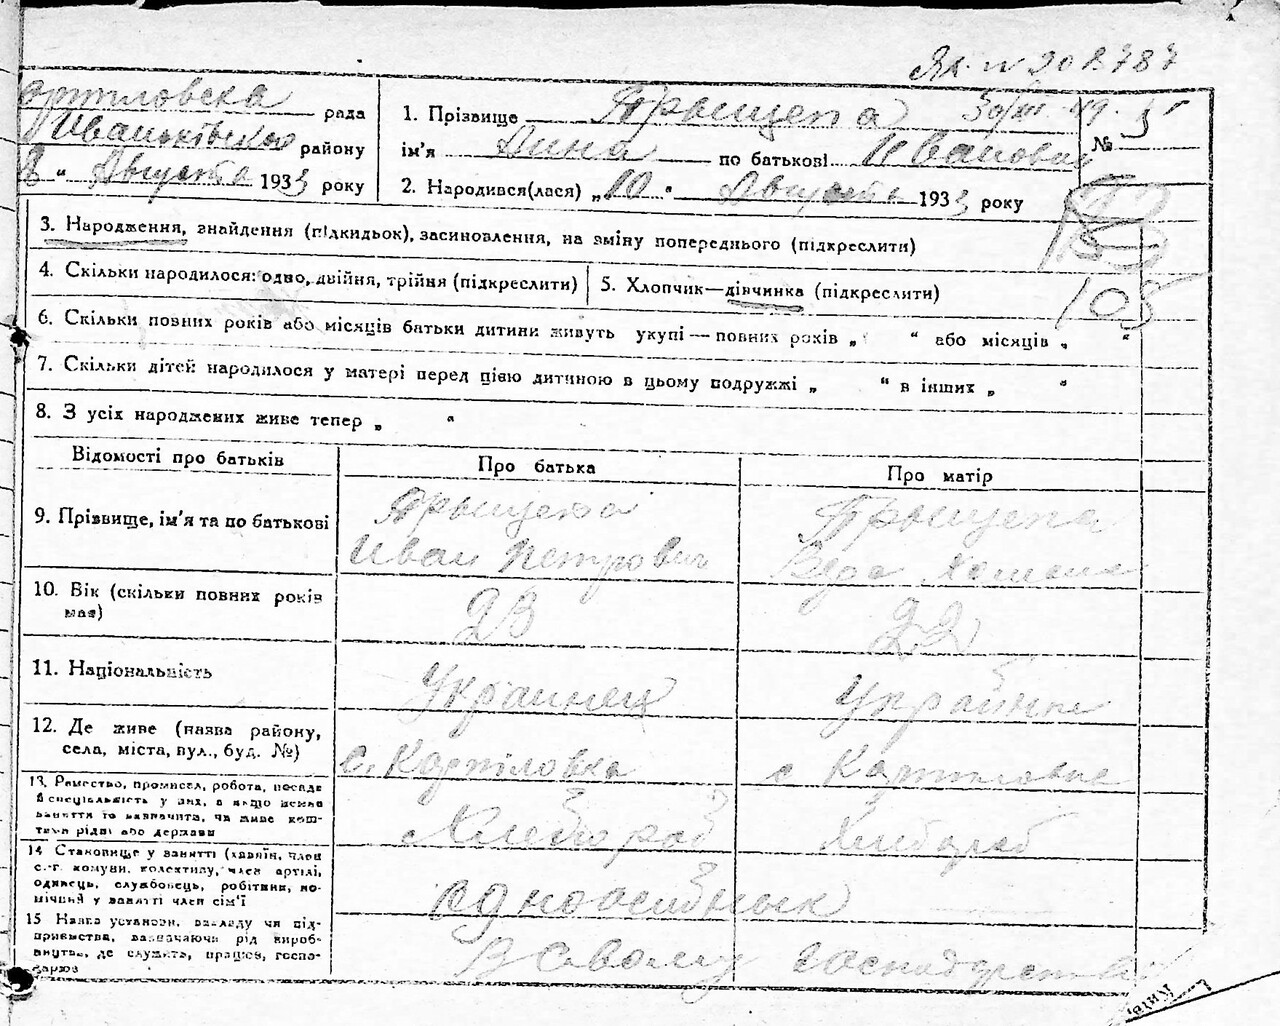 20 8787
30/III 49. 5
рада
Иваньківского району
" Августа 1933 року
1. Прізвище Прыщепа
ім'я Дина по батькові Ивановна
2. Народився(лася) „10 " Августа 1933 року
№
3. Народження, знайдення (підкидьок), засиновлення, на зміну попереднього (підкреслити)
4. Скільки народилося: одно, двійня, трійня (підкреслити) 5. Хлопчик—дівчинка (підкреслити)
105
6. Скільки повних років або місяців батьки дитини живуть укупі — повних років „ " або місяців „ "
7. Скільки дітей народилося у матері перед цією дитиною в цьому подружжі „ " в інших „ "
8. З усіх народжених живе тепер „ "
Відомості про батьків Про батька Про матір
9. Прізвище, ім'я та по батькові Прыщепа Прыщепа
Иван Петрович Вера
10. Вік (скільки повних років
має) 23 22
11. Національність Украинец Украінка
12. Де живе (назва району,
села, міста, вул., буд. №) с. Карпіловка с
13. Ремество, промисел, робота, посада
й спеціальність у них, а якщо немає
заняття то зазначити, чи живе кош-
тами рідні або держави Хлебороб Хлібороб
14 Становище у занятті (хазяїн, член
с.-г. комуни, колективу, член артілі,
одинець, службовець, робітник, по-
мічний у занятті член сім'ї одноосибнык
15 Назва установи, закладу чи під-
приємства, зазначаючи рід вироб-
ництва, де служить, працює, госпо-
дарює В своему господарстви